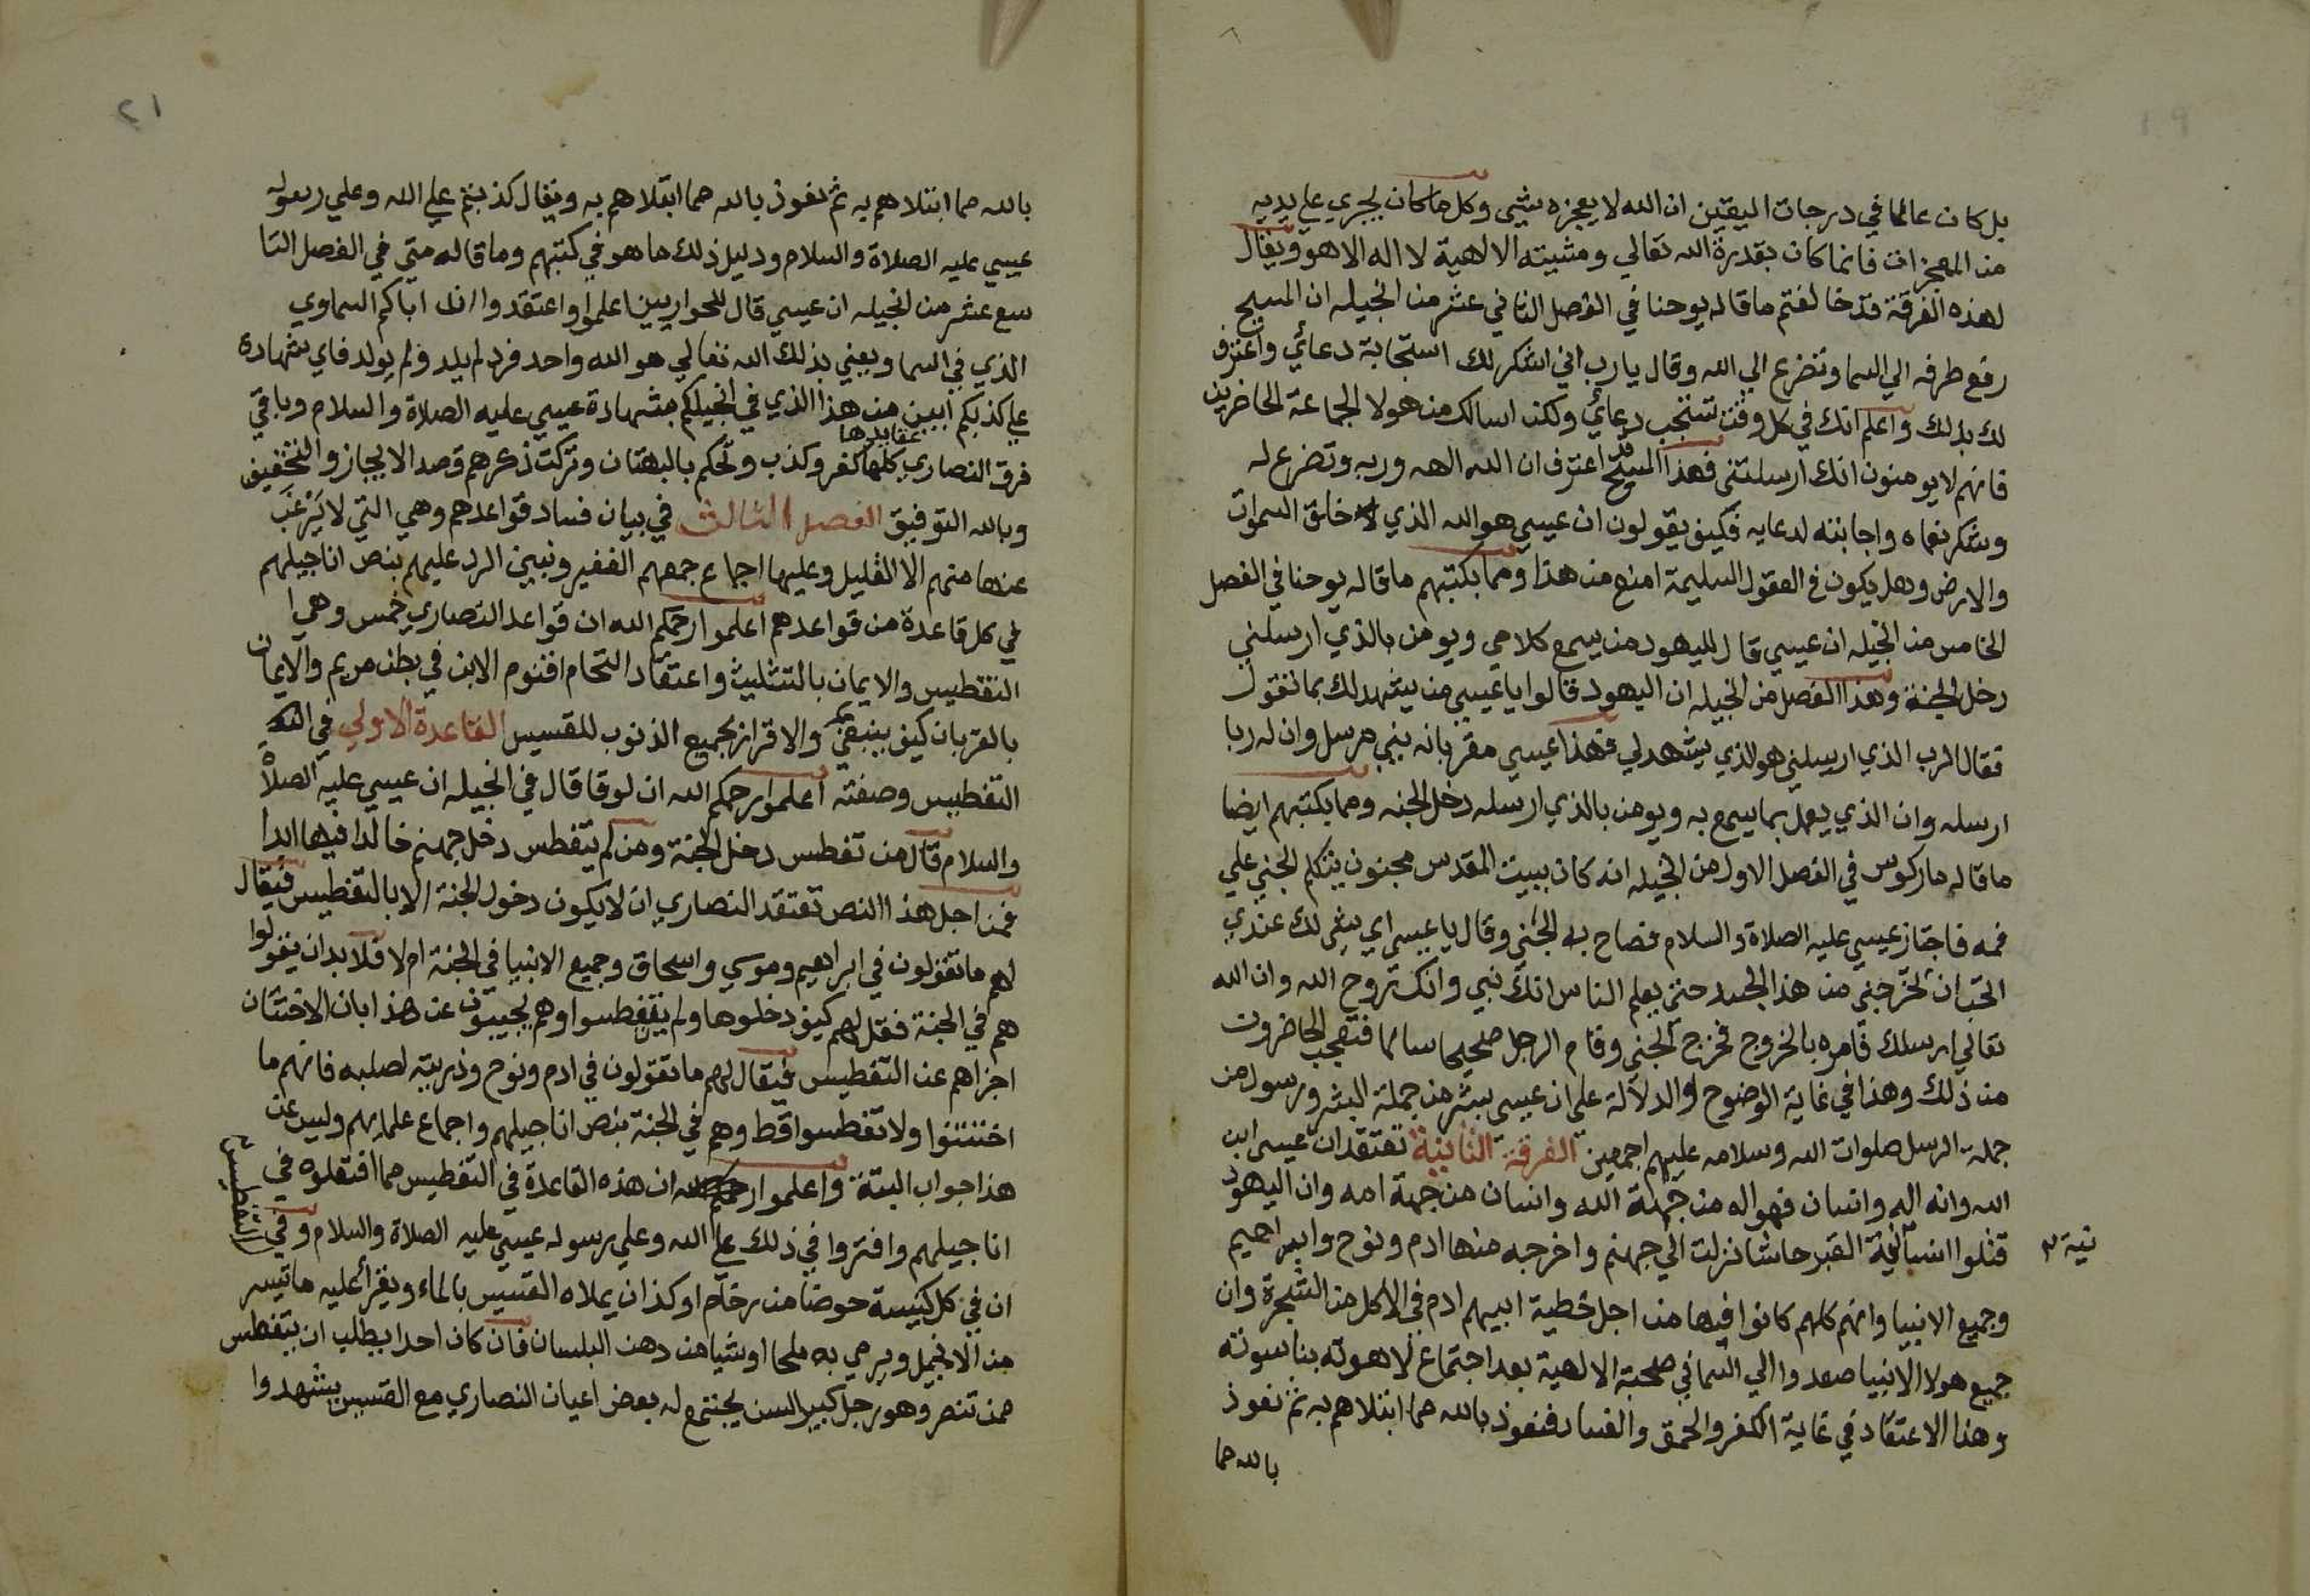 بل كان عالما في درجات اليقين ان الله لا يعجزه شي وكل ما كان يجري علي يديه
من المعجزات فانما كان بقدرة الله تعالي ومشيته الالهية لا اله الا هو ويقال
لهذه الفرقة قد خالفتم ما قاله يوحنا في الفصل الثاني عشر من انجيله ان المسيح
رفع طرفه الي السما وتضرع الي الله وقال يا رب اني اشكر لك استجابة دعائي واعترف
لك بذلك واعلم انك في كل وقت تستجب دعائي ولكن اسالك من هولا الجماعة الحاضرين
فانهم لا يومنون انك ارسلتني فهذا المسيح قد اعترف ان الله الهه وربه وتضرع له
وشكر نعماه واجابته لدعايه فكيف يقولون ان عيسي هو الله الذي خلق السموات
والارض وهل يكون في العقول السليمة امنع من هذا ومما بكتبهم ما قاله يوحنا في الفصل
الخامس من انجيله ان عيسي قال لليهود من يسمع كلامي ويومن بالذي ارسلني
دخل الجنة وهذا الفصل من انجيله ان اليهود قالوا يا عيسي من يشهد لك بما تقول
فقال الرب الذي ارسلني هو الذي يشهد لي فهذا عيسي مقر بانه نبي مرسل وان له ربا
ارسله وان الذي يعمل بما يسمع به ويومن بالذي ارسله دخل الجنه ومما بكتبهم ايضا
ما قاله ماركوس في الفصل الاول من انجيله انه كان ببيت المقدس مجنون يتكلم الجني علي
فمه فاجتاز عيسي عليه الصلاة والسلام فصاح به الجني وقال يا عيسي اي شي لك عندي
اتحب ان تخرجني من هذا الجسد حتي يعلم الناس انك نبي وانك روح الله وان الله
تعالي ارسلك فامره بالخروج فخرج الجني وقام الرجل صحيحا سالما فتعجب الحاضرون
من ذلك وهذا في غاية الوضوح والدلالة علي ان عيسي بشر من جملة البشر ورسول من
جملة الرسل صلوات الله وسلامه عليهم اجمعين الفرقة الثانية تعتقد ان عيسي ابن
الله وانه اله وانسان فهو اله من جهة الله وانسان من جهة امه وان اليهود
قتلوا انسانيته القبر حاشا نزلت الي جهنم واخرجه منها ادم ونوح وابراهيم
نية
وجميع الانبيا وانهم كلهم كانوا فيها من اجل خطية ابيهم ادم في الاكل من الشجرة وان
جميع هولا الانبيا صعدوا الي السما في صحبة الالهية بعد اجتماع لاهوته بناسوته
وهذا الاعتقاد في غاية الكفر والحمق والفساد فنعوذ بالله مما ابتلاهم به ثم نعوذ
بالله مما
٢١
بالله مما ابتلاهم به ثم نعوذ بالله مما ابتلاهم به ويقال كذبتم علي الله وعلي رسوله
عيسي عليه الصلاة والسلام ودليل ذلك ما هو في كتبهم وما قاله متي في الفصل التا
سع عشر من انجيله ان عيسي قال للحواريين اعلموا واعتقدوا ان اباكم السماوي
الذي في السما ويعني بذلك الله تعالي هو الله واحد فرد لم يلد ولم يولد فاي شهادة
علي كذبكم ابين من هذا الذي في انجيلكم بشهادة عيسي عليه الصلاة والسلام وباقي
فرق النصاري عقايدها كلها كفر وكذب وتحكم بالبهتان وتركت ذكرهم قصد الايجاز والتخفيف
وبالله التوفيق الفصل الثالث في بيان فساد قواعدهم وهي التي لا يرغب
عنها منهم الا القليل وعليها اجماع جمعهم الغفير ونبين الرد عليهم بنص اناجيلهم
في كل قاعدة من قواعدهم اعلموا رحمكم الله ان قواعد النصاري خمس وهي
التغطيس والايمان بالتثليث واعتقاد التحام اقنوم الابن في بطن مريم والايمان
بالقربان كيف ينبغي والاقرار بجميع الذنوب للقسيس القاعدة الاولي في
التغطيس وصفته اعلموا رحمكم الله ان لوقا قال في انجيله ان عيسي عليه الصلاة
والسلام قال من تغطس دخل الجنة ومن لم يتغطس دخل جهنم خالدا فيها ابدا
فمن اجل هذا النص تعتقد النصاري ان لا يكون دخول الجنة الا بالتغطيس فيقال
لهم ما تقولون في ابراهيم وموسي واسحاق وجميع الانبيا في الجنة ام لا فلا بد ان يقولوا
هم في الجنة فقل لهم كيف دخلوها ولم يتغطسوا وهم يجيبون عن هذا بان الاختتان
اجزاهم عن التغطيس فيقال لهم ما تقولون في ادم ونوح وذريته لصلبه فانهم ما
اختتنوا ولا تغطسوا قط وهم في الجنة بنص اناجيلهم واجماع علمايهم وليس عن
هذا جواب البتة واعلموا رحمكم الله ان هذه القاعدة في التغطيس مما افتعلوه في
اناجيلهم وافتروا في ذلك علي الله وعلي رسوله عيسي عليه الصلاة والسلام وفي
التغطيس
ان في كل كنيسة حوضا من رخام او كذان يملاه القسيس بالماء ويقرأ عليه ما تيسر
من الانجيل ويرمي به ملحا وشيا من دهن البلسان فان كان احدا يطلب ان يتغطس
ممن تنصر وهو رجل كبير السن يجتمع له بعض اعيان النصاري مع القسيس يشهدوا